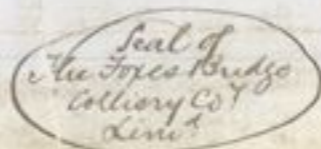 Seal of
The Foxes Bridge
Colliery Coy
Limd